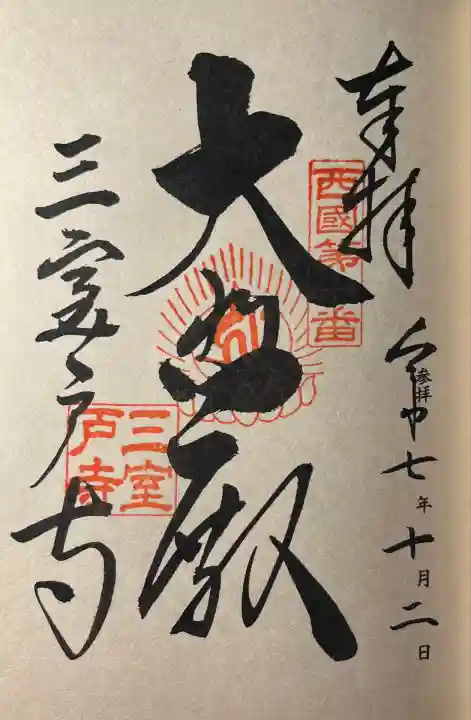 奉拝
西國第十番
令和七年十月二日
参拝
大悲殿
三室戸寺
三室戸寺